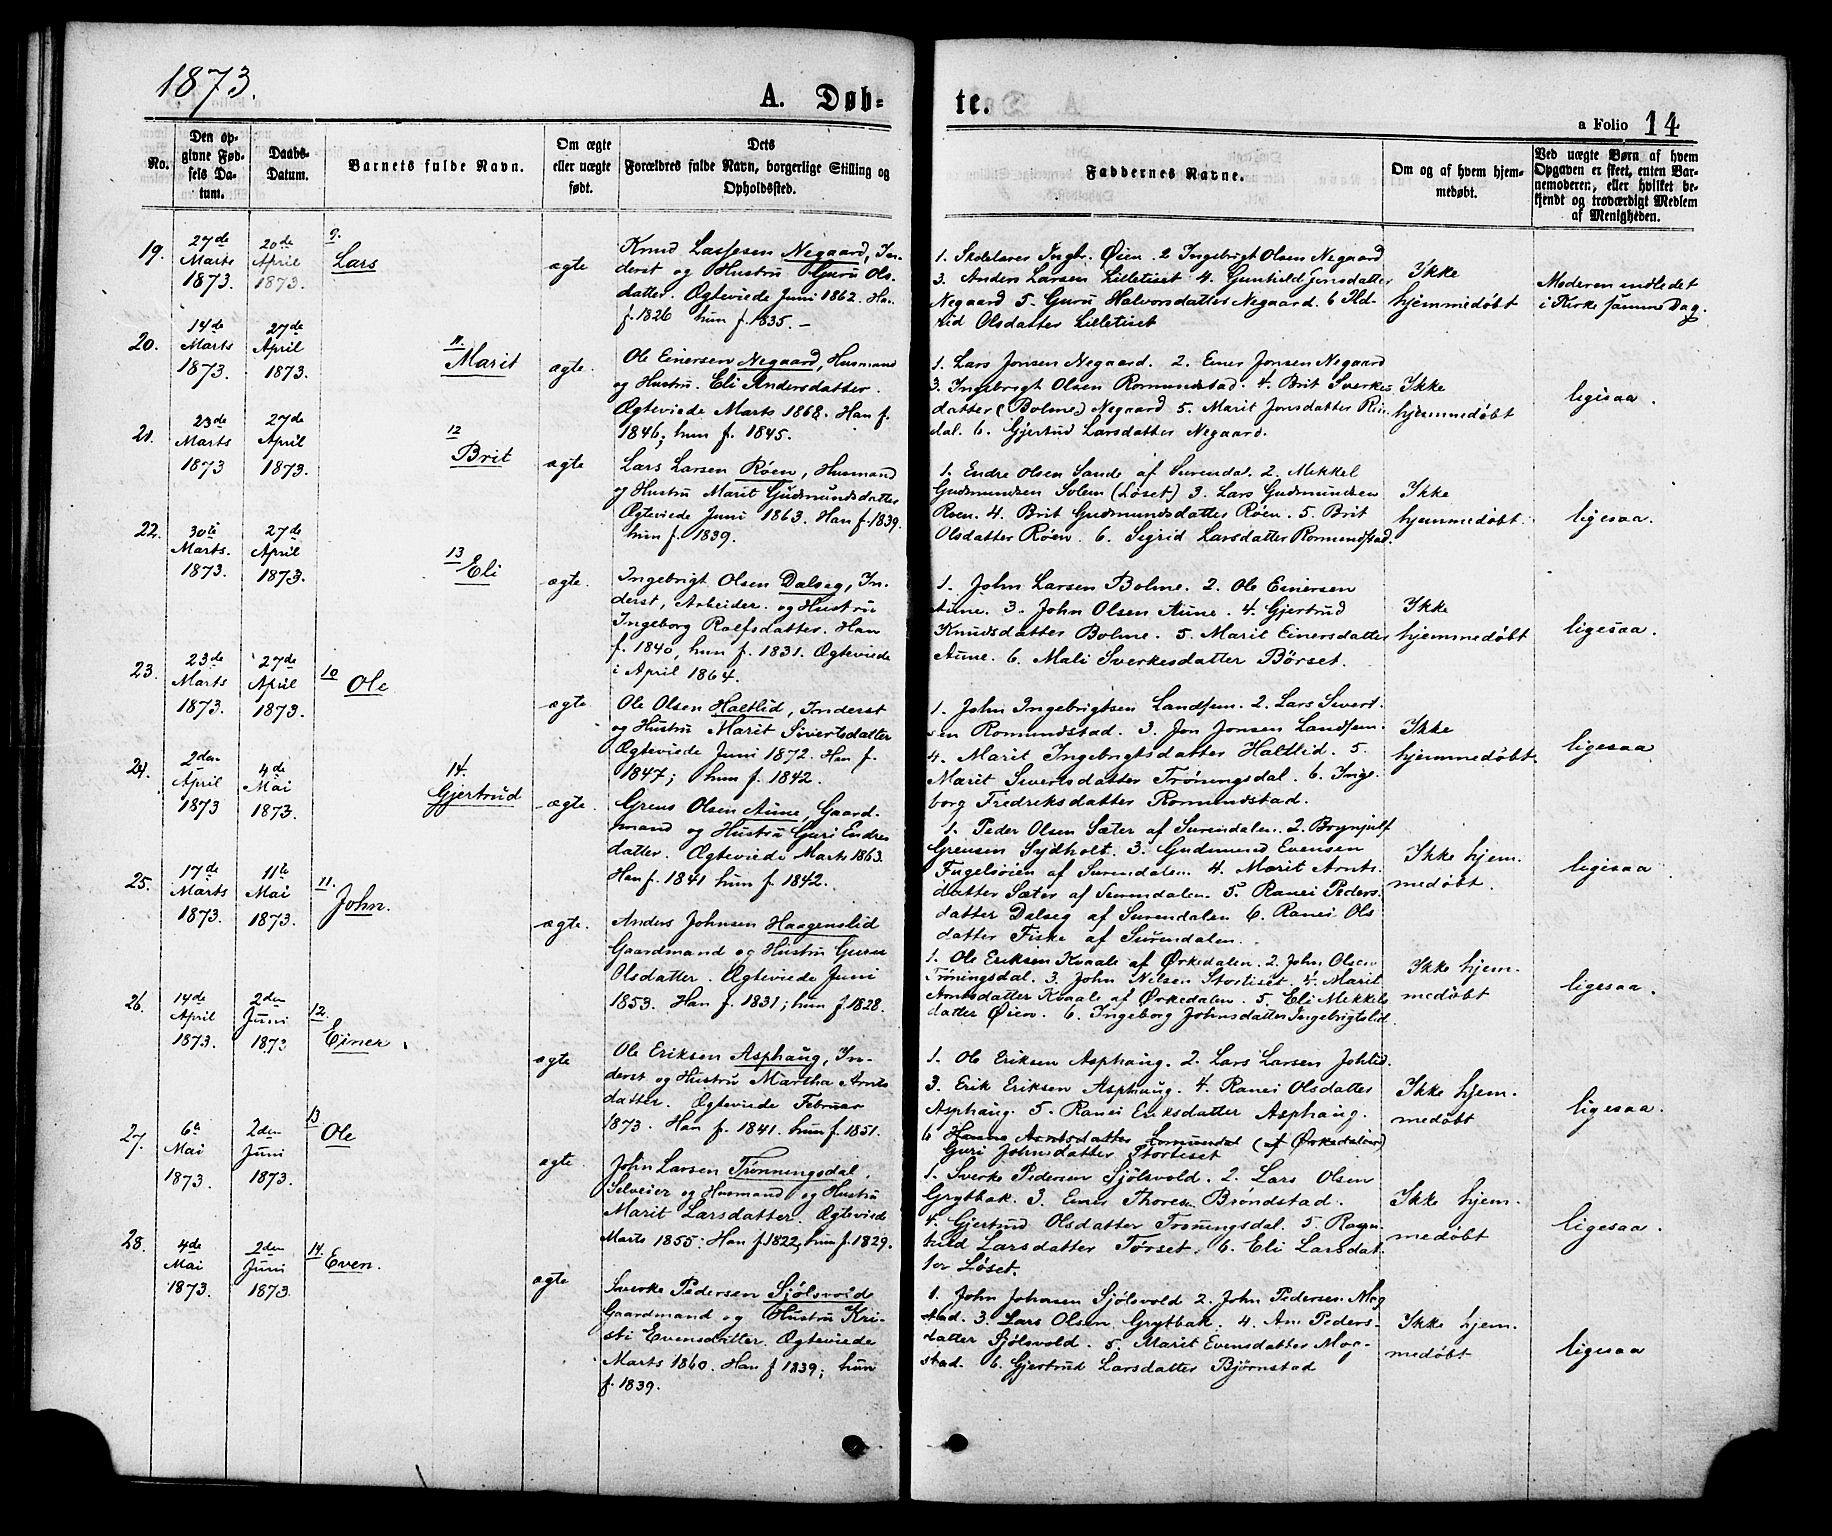 1873.
A. Døb=
te.
a Folio 14
No.
Den op-
givne Fød-
sels Da-
tum.
Daabs-
Datum.
Barnets fulde Navn.
Om ægte
eller uægte
født.
Dets
Forældres fulde Navn, borgerlige Stilling og
Opholdssted.
Faddernes Navne.
Om og af hvem hjem-
medøbt.
Ved uægte Børn af hvem
Opgaven er skeet, enten Bar-
nemoderen, eller hvilket be-
kjendt og troværdigt Medlem
af Menigheden.
19.
27de
Marts
1873.
20de
April
1873.
9.
Lars
ægte
Knud Lassesen Negaard, In-
derst og Hustru Guru Ols-
datter. Ægteviede Juni 1862. Han
f. 1826 hun f. 1835. –
1. Skolelærer Ingbr. Øien. 2 Ingebrigt Olsen Negaard
3. Anders Larsen Lilletiset 4. Gunhild Jonsdatter
Negaard 5. Guru Halvorsdatter Negaard. 6 Ild-
rid Olsdatter Lilletiset
Ikke
hjemmedøbt
Moderen indledet
i Kirke samme Dag.
20.
14de
Marts
1873.
27de
April
1873.
11.
Marit
ægte.
Ole Einersen Negaard, Husmand
og Hustru Eli Andersdatter.
Ægteviede Marts 1868. Han f.
1846; hun f. 1845.
1. Lars Jonsen Negaard. 2. Einer Jonsen Negaard
3. Ingebrigt Olsen Romundstad. 4. Brit Sverkes-
datter (Bolme) Negaard 5. Marit Jonsdatter Rin-
dal. 6. Gjertrud Larsdatter Negaard.
Ikke
hjemmedøbt
ligesaa.
21.
23de
Marts
1873
27de
April
1873.
12
Brit
ægte
Lars Larsen Røen, Husmand
og Hustru Marit Gudmundsdatter
Ægteviede Juni 1863. Han f. 1839.
hun f. 1839.
1. Endre Olsen Sande af Surendal. 2. Mekkel
Gudmundsen Solem (Løset) 3. Lars Gudmundsen
Røen. 4. Brit Gudmundsdatter Røen. 5. Brit
Olsdatter Røen. 6. Sigrid Larsdatter Romundstad.
Ikke
hjemmedøbt.
ligesaa.
22.
30te
Marts.
1873.
27de
April
1873.
13
Eli
ægte.
Ingebrigt Olsen Dalseg, In-
derst, Arbeider. og Hustru
Ingeborg Rolfsdatter. Han
f. 1840, hun f. 1831. Ægteviede
i April 1864.
1. John Larsen Bolme. 2. Ole Einersen
Aune. 3. John Olsen Aune. 4. Gjertrud
Knudsdatter Bolme. 5. Marit Einersdatter
Aune. 6. Mali Sverkesdatter Børset.
Ikke
hjemmedøbt
ligesaa.
23.
23de
Marts
1873.
27de
April
1873.
10
Ole
ægte.
Ole Olsen Haltlid, Inderst
og Hustru Marit Sivertsdatter
Ægteviede Juni 1872. Han f.
1847; hun f. 1842.
1. John Ingebrigtsen Landsem. 2. Lars Sivert-
sen Romundstad. 3. Jon Jonsen Landsem
4. Marit Ingebrigtsdatter Haltlid. 5.
Marit Sivertsdatter Trøningsdal. 6. Inge-
borg Fredriksdatter Romundstad.
Ikke
hjemmedøbt.
ligesaa
24.
2den
April
1873
4de
Mai
1873.
14.
Gjertrud
ægte.
Greus Olsen Aune, Gaard-
mand og Hustru Guri Endres
datter. Ægteviede Marts 1863.
Han f. 1841 hun f. 1842.
1. Peder Olsen Sæter af Surendalen. 2. Brynjulf
Greusen Sydholt. 3. Gudmund Evensen
Fugelsøien af Surendalen. 4. Marit Arnts-
datter Sæter af Surendalen. 5. Ranei Peders-
datter Dalseg af Surendalen 6. Ranei Ols-
datter Fiske af Surendalen.
Ikke hjem-
medøbt.
ligesaa.
25.
17de
Marts
1873.
11te
Mai
1873.
11.
John.
ægte.
Anders Johnsen Haagenslid
Gaardmand og Hustru Guru
Olsdatter. Ægteviede Juni
1853. Han f. 1831; hun f. 1828.
1. Ole Eriksen Kvaale af Ørkedalen. 2. John Olsen
Trøningsdal. 3. John Nilsen Stortiset. 4. Marit
Arntsdatter Kvaale af Ørkedalen. 5. Eli Mekkels
datter Øien. 6. Ingeborg Johnsdatter Ingebrigtslid.
Ikke hjem-
medøbt
ligesaa.
26.
14de
April
1873.
2den
Juni
1873
12.
Einer.
ægte
Ole Eriksen Asphaug, In-
derst og Hustru Martha Arnts
datter. Ægteviede Februar
1873. Han f. 1841. hun f. 1851.
1. Ole Eriksen Asphaug. 2. Lars Larsen Johlid.
3. Erik Eriksen Asphaug. 4. Ranei Olsdatter
Asphaug. 5. Ranei Eriksdatter Asphaug.
6 Hanne Arntsdatter Lomundal (af Ørkedalen)
Guri Johnsdatter Stortiset
Ikke hjem-
medøbt
ligesaa.
27.
6te
Mai
1873.
2den
Juni
1873.
13
Ole
ægte.
John Larsen Trønningsdal,
Selveier og Husmand og Hustru
Marit Larsdatter. Ægteviede
Marts 1855. Han f. 1822, hun f. 1829.
1. Sverke Pedersen Sjølsvold. 2. Lars Olsen
Grytbak. 3. Einer Thoresen Brøndstad.
4. Gjertrud Olsdatter Trøningsdal. 5. Ragn-
hild Larsdatter Tørset. 6. Eli Larsdat-
ter Løset.
Ikke hjem-
medøbt
ligesaa.
28.
4de
Mai
1873.
2den
Juni
1873.
14.
Even.
ægte
Sverke Pedersen Sjølsvold
Gaardmand og Hustru Kri-
sti Evensdatter. Ægteviede
Marts 1860. Han f 1839; hun
f. 1839.
1. John Johnsen Sjølsvold 2. John Pedersen Mog-
stad. 3. Lars Olsen Grytbak. 4. Ane Peders-
datter Sjølsvold. 5. Marit Evensdatter Mog-
stad. 6. Gjertrud Larsdatter Bjørnstad
Ikke hjem-
medøbt
ligesaa